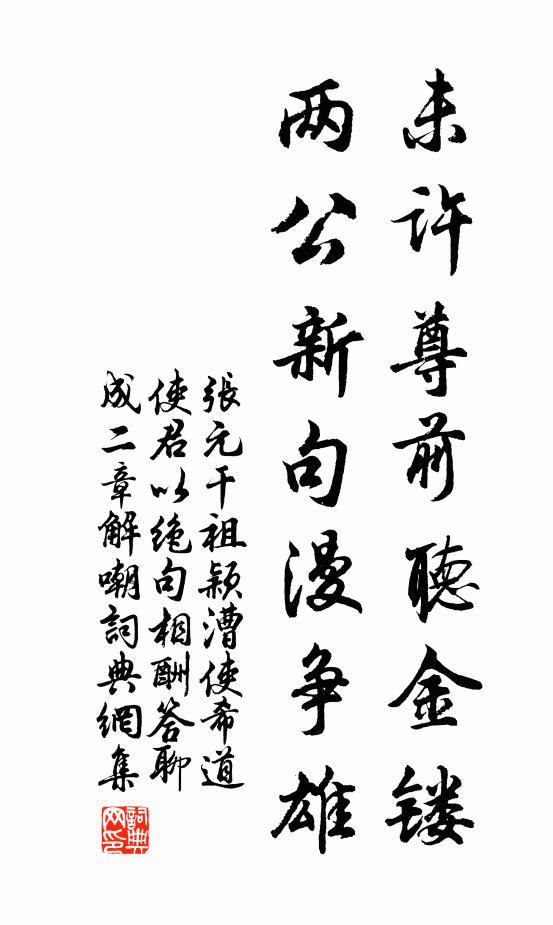 未许尊前聽金镂
两公新句漫争雄
張元干祖颖漕使希道
使君以绝句相酬答聊
成二章解嘲詞典網集
詞典网印